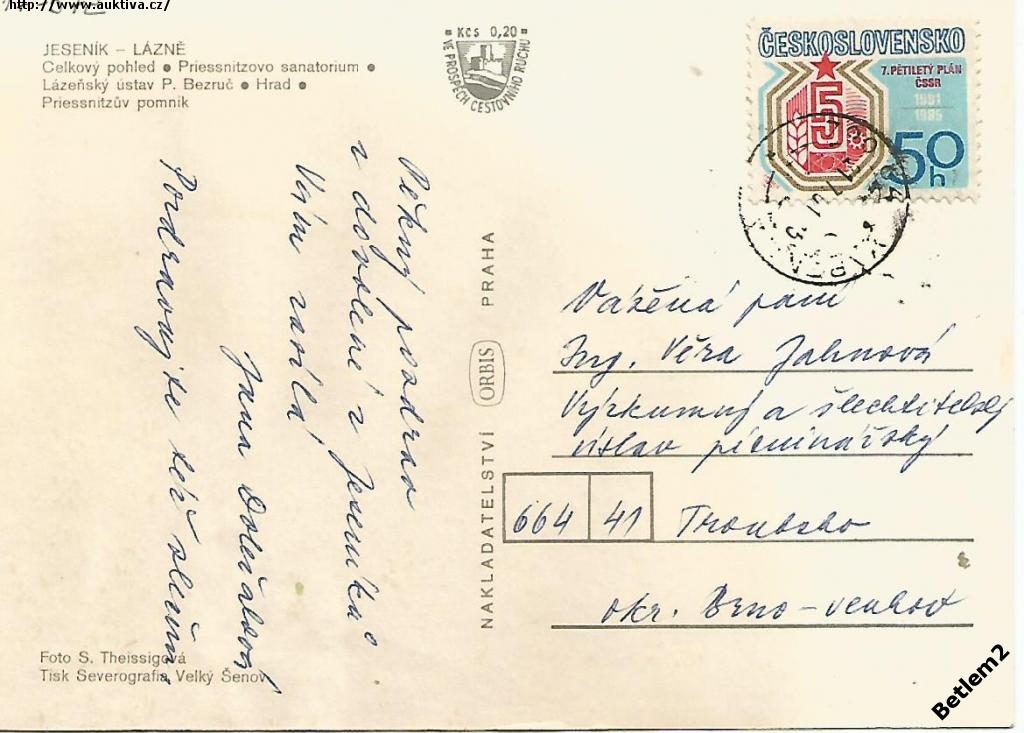 http://www.auktiva.cz/
JESENÍK – LÁZNĚ
Celkový pohled ● Priessnitzovo sanatorium ●
Lázeňský ústav P. Bezruč ● Hrad ●
Priessnitzův pomník
Kčs 0,20
VE PROSPĚCH CESTOVNÍHO RUCHU
ČESKOSLOVENSKO
7. PĚTILETÝ PLÁN
ČSSR
1981
1985
5
50
h
Pěkný pozdrav
z dovolené z Jeseníků
Vám zasílá
Jana Doležalová
Pozdravujte též
NAKLADATELSTVÍ ORBIS PRAHA
Vážená paní
Ing. Věra Jahnová
Výzkumný a šlechtitelský
ústav pícninářský
664 41 Troubsko
okr. Brno-venkov
Foto S. Theissigová
Tisk Severografia, Velký Šenov
Betlem2